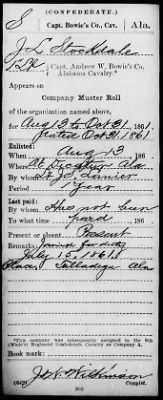 (CONFEDERATE.)
S Capt. Bowie's Co., Cav. Ala.
J. L. Stockdale
Capt. Andrew W. Bowie's Co.
Alabama Cavalry.*
Appears on
Company Muster Roll
of the organization named above,
for Aug 13 to Oct 31, 1861.
dated Oct 31 1861
Enlisted:
When Aug 13, 186
Where Ala
By whom
Period 1 year
Last paid:
By whom Has not been
To what time paid, 186
Present or absent Present
Remarks: Joined for duty
July 15, 1861
Place, Talladega Ala
*This company was subsequently assigned to the 8th
Regiment Confederate Cavalry as Company A.
Book mark:
J. W. Wilkinson
(642)